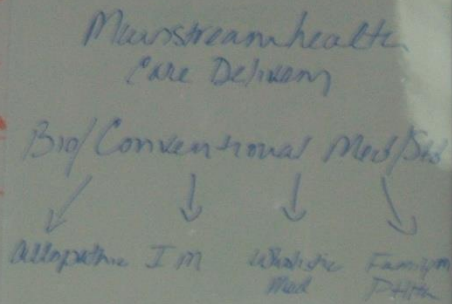 Mainstream health
Care Delivery
Bio/Conventional Med/Std
Allopathic IM Wholistic Family m
Med